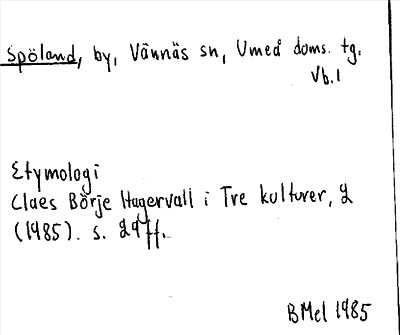 Spöland, by, Vännäs sn, Umeå doms. tg.
Vb.1
Etymologi
Claes Börje Hagervall i Tre kulturer, 2
(1985). s. 29 ff.
BMel 1985